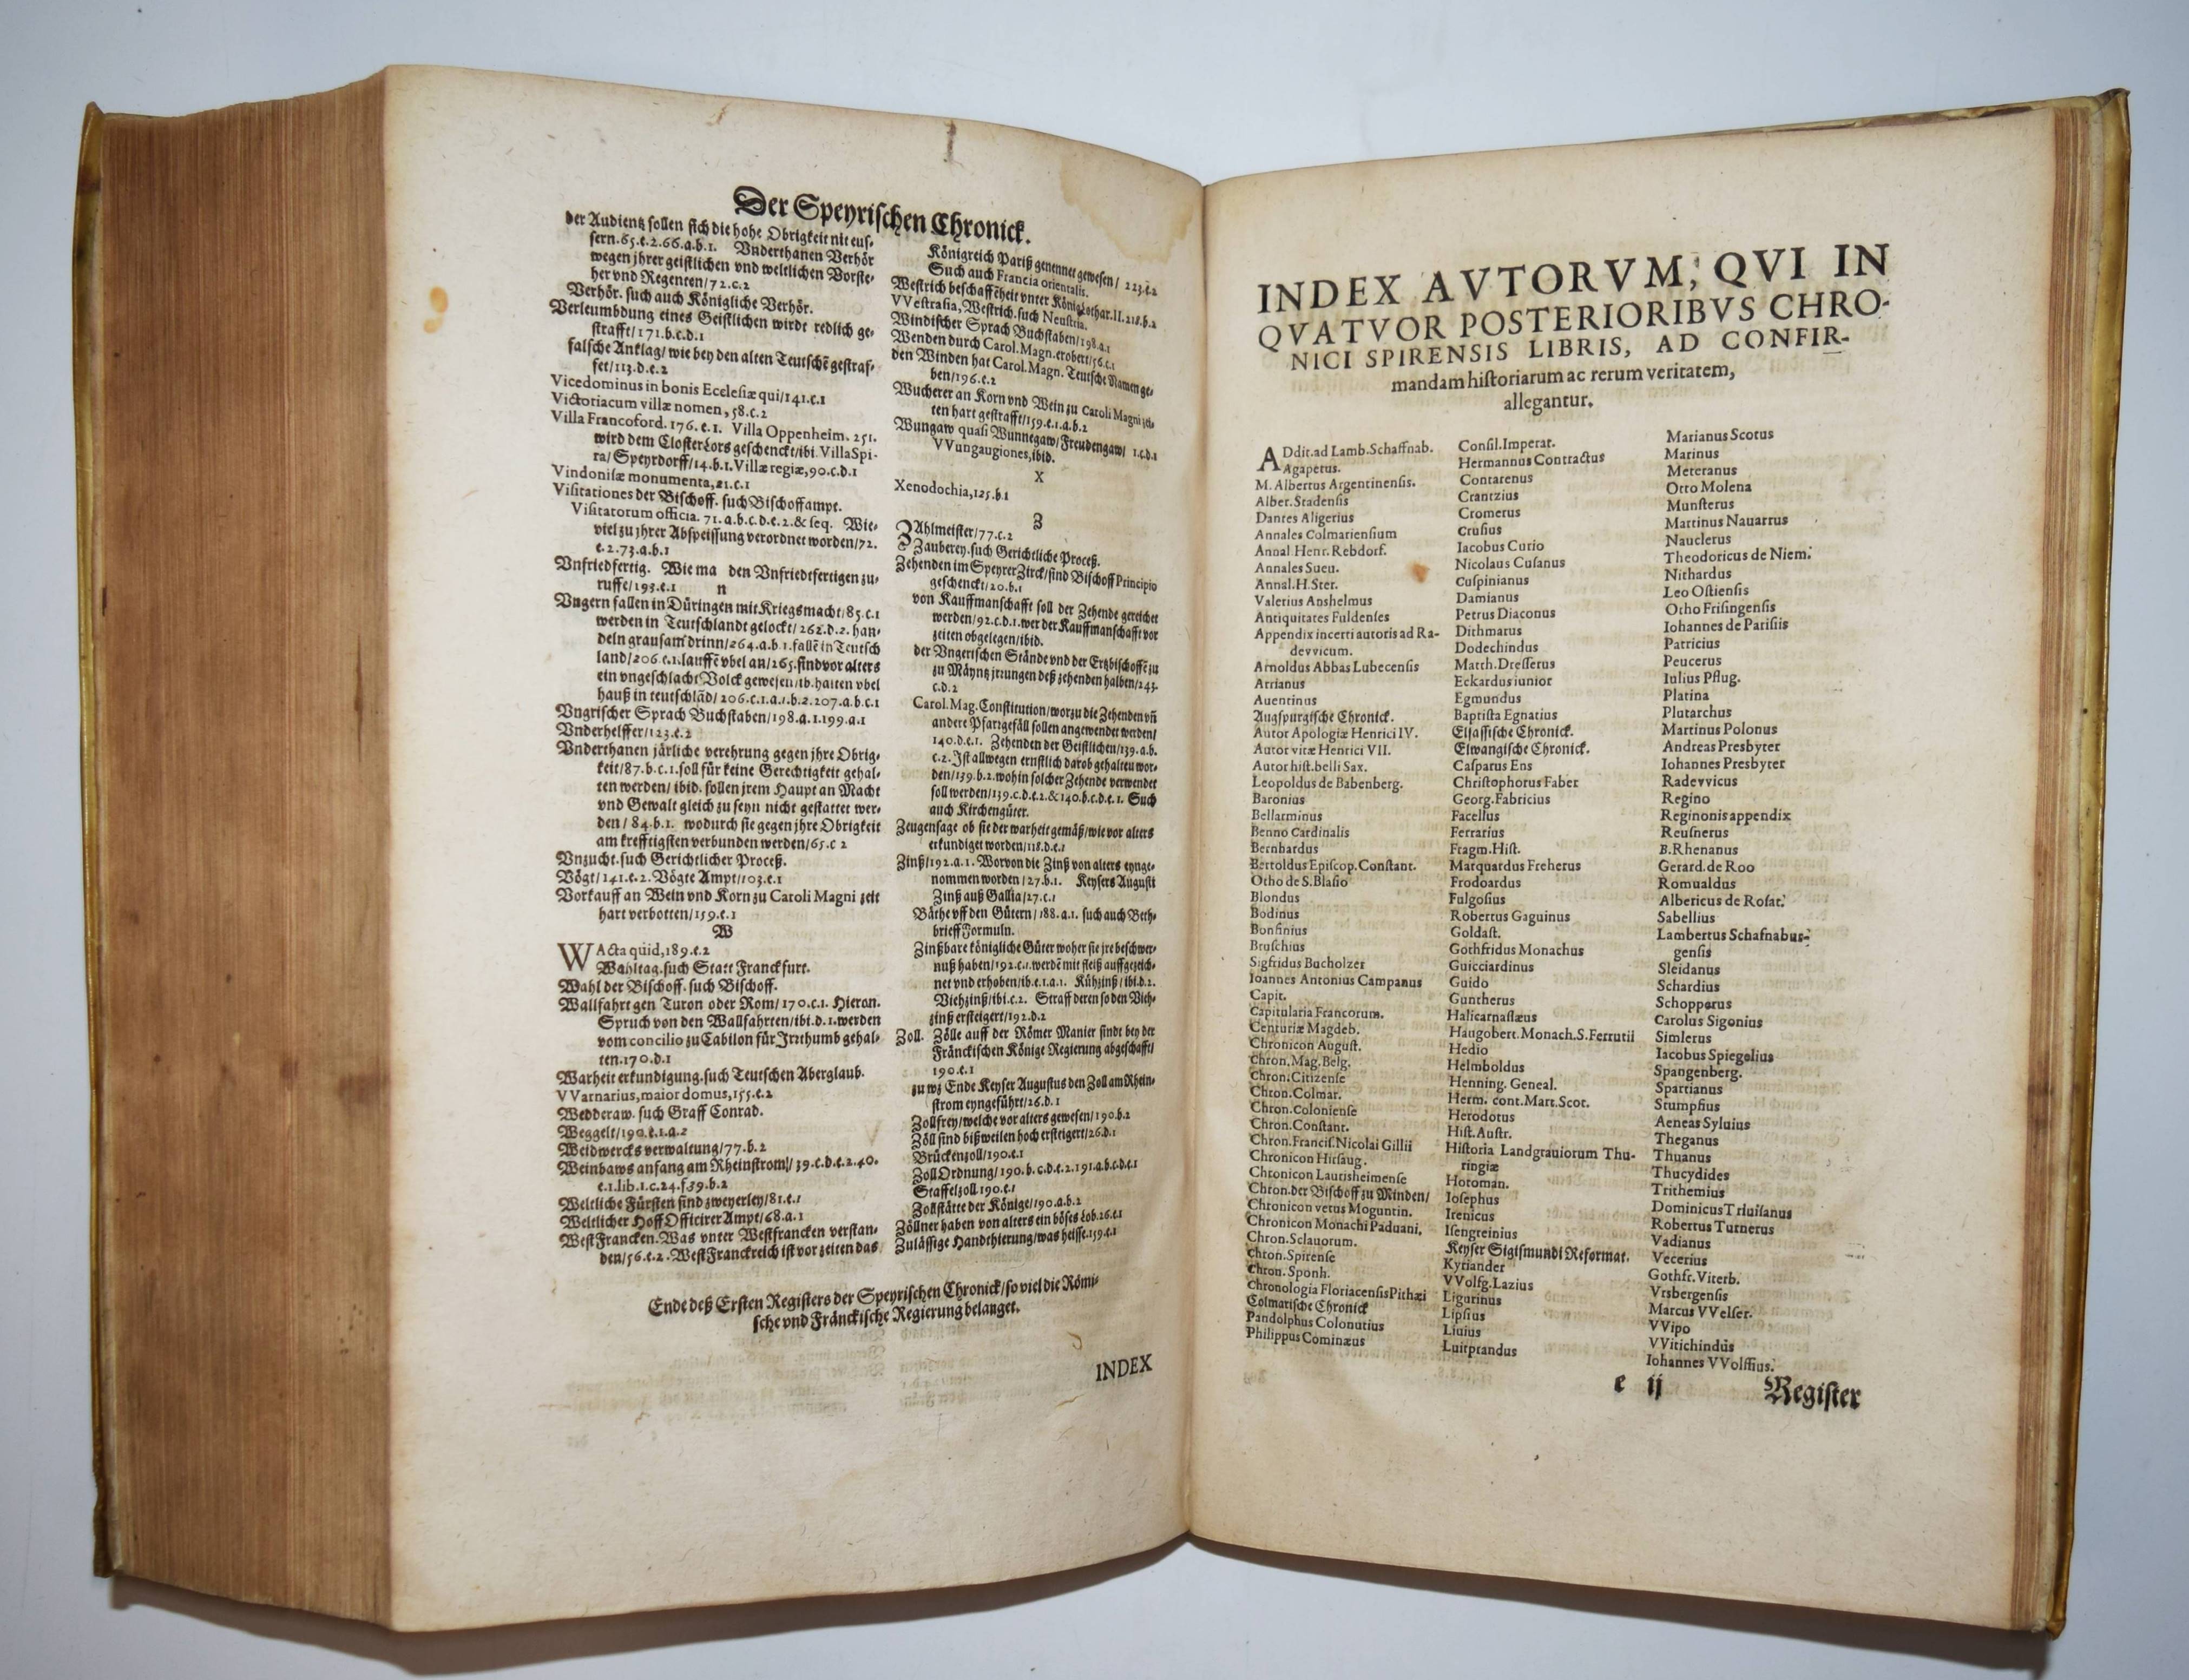 Der Speyrischen Chronick.
der Audientz sollen sich die hohe Obrigkeit nit eus-
sern. 65.e.2.66.a.b.1. Vnderthanen Verhör
wegen jhrer geistlichen vnd weltlichen Vorste-
her vnd Regenten/72.c.2
Verhör. such auch Königliche Verhör.
Verleumbdung eines Geistlichen wirdt redlich ge-
strafft/171.b.c.d.1
falsche Anklag/wie bey den alten Teutschē gestraf-
fet/113.d.e.2
Vicedominus in bonis Ecclesiæ qui/141.c.1
Victoriacum villæ nomen, 58.c.2
Villa Francoford. 176.e.1. Villa Oppenheim. 251.
wird dem Closter Lors geschenckt/ibi. Villa Spi-
ra/Speyrdorff/14.b.1. Villæ regiæ, 90.c.d.1
Vindonisæ monumenta, 21.c.1
Visitationes der Bischoff. such Bischoffampt.
Visitatorum officia. 71.a.b.c.d.e.2.& seq. Wie-
viel zu jhrer Abspeissung verordnet worden/72.
e.2.73.a.b.1
Vnfriedfertig. Wie ma den Vnfriedtfertigen zu-
ruffe/193.e.1 n
Vngern fallen in Düringen mit Kriegsmacht/85.c.1
werden in Teutschlandt gelockt/262.d.2. han-
deln grausam drinn/264.a.b.1. fallē in Teutsch
land/206.c.1. lauffē vbel an/265. sind vor alters
ein vngeschlacht Volck gewesen/ib. halten vbel
hauß in teutschlād/206.c.1.a.1.b.2.207.a.b.c.1
Vngrischer Sprach Buchstaben/198.a.1.199.a.1
Vnderhelffer/123.e.2
Vnderthanen järliche verehrung gegen jhre Obrig-
keit/87.b.c.1. soll für keine Gerechtigkeit gehal-
ten werden/ibid. sollen jrem Haupt an Macht
vnd Gewalt gleich zu seyn nicht gestattet wer-
den/84.b.1. wodurch sie gegen jhre Obrigkeit
am krefftigsten verbunden werden/65.c 2
Vnzucht. such Gerichtlicher Proceß.
Vögt/141.e.2. Vögte Ampt/103.e.1
Vorkauff an Wein vnd Korn zu Caroli Magni zeit
hart verbotten/159.e.1
W
WActa quid, 189.e.2
Wahltag. such Statt Franckfurt.
Wahl der Bischoff. such Bischoff.
Wallfahrt gen Turon oder Rom/170.c.1. Hieron.
Spruch von den Wallfahrten/ibi.d.1. werden
vom concilio zu Cabilon für Jrrthumb gehal-
ten. 170.d.1
Warheit erkundigung. such Teutschen Aberglaub.
VVarnarius, maior domus, 155.e.2
Wedderaw. such Graff Conrad.
Weggelt/190.e.1.a.2
Weidwercks verwaltung/77.b.2
Weinbaws anfang am Rheinstrom/39.c.d.e.2.40.
e.1.lib.1.c.24.f.39.b.2
Weltliche Fürsten sind zweyerley/81.e.1
Weltlicher Hoff Officirer Ampt/68.a.1
West Francken. Was vnter Westfrancken verstan-
den/56.e.2. West Franckreich ist vor zeiten das
Königreich Pariß genennet gewesen/223.e.2
Such auch Francia orientalis.
Westrich beschaffēheit vnter König Lothar. II. 218.b.2
VVestrasia, Westrich. such Neustria.
Windischer Sprach Buchstaben/198.a.1
Wenden durch Carol. Magn. erobert/56.c.1
den Winden hat Carol. Magn. Teutsche Namen ge-
ben/196.e.2
Wucherer an Korn vnd Wein zu Caroli Magni zei-
ten hart gestrafft/159.e.1.a.b.2
Wungaw quasi Wunnegaw/Freudengaw/1.c.d.1
VVungaugiones, ibid.
X
Xenodochia, 125.b.1
Z
ZAhlmeister/77.c.2
Zauberey. such Gerichtliche Proceß.
Zehenden im Speyrer Zirck/sind Bischoff Principio
geschenckt/20.b.1
von Kauffmanschafft soll der Zehende gereichet
werden/92.c.d.1. wer der Kauffmanschafft vor
zeiten obgelegen/ibid.
der Vngerischen Stände vnd der Ertzbischoffē zu
zu Mäyntz jrrungen deß zehenden halben/243.
c.d.2
Carol. Mag. Constitution/worzu die Zehenden vñ
andere Pfarrgefäll sollen angewendet werden/
140.d.e.1. Zehenden der Geistlichen/139.a.b.
c.2. Ist allwegen ernstlich darob gehalten wor-
den/139.b.2. wohin solcher Zehende verwendet
soll werden/139.c.d.e.2.&140.b.c.d.e.1. Such
auch Kirchengüter.
Zeugensage ob sie der warheit gemäß/wie vor alters
erkundiget worden/118.d.e.1
Zinß/192.a.1. Worvon die Zinß von alters eynge-
nommen worden/27.b.1. Keysers Augusti
Zinß auß Gallia/27.c.1
Bäthe vff den Gütern/188.a.1. such auch Beth-
brieff Formuln.
Zinßbare königliche Güter woher sie jre beschwer-
nuß haben/192.c.1. werdē mit fleiß auffgezeich-
net vnd erhoben/ib.e.1.a.1. Kühzinß/ibi.d.2.
Viehzinß/ibi.c.2. Straff deren so den Vieh-
zinß ersteigert/192.d.2
Zoll. Zölle auff der Römer Manier sindt bey der
Fränckischen Könige Regierung abgeschafft/
190.e.1
zu wz Ende Keyser Augustus den Zoll am Rhein-
strom eyngeführt/26.d.1
Zollfrey/welche vor alters gewesen/190.b.2
Zöll sind bißweilen hoch ersteigert/26.d.1
Brückenzoll/190.e.1
Zoll Ordnung/190.b.c.d.e.2.191.a.b.c.d.e.1
Staffelzoll 190.e.1
Zollstätte der Könige/190.a.b.2
Zöllner haben von alters ein böses Lob. 26.e.1
Zulässige Handthierung/was heisse. 159 4.e.1
Ende deß Ersten Registers der Speyrischen Chronick/so viel die Römi-
sche vnd Fränckische Regierung belanget.
INDEX
INDEX AVTORVM, QVI IN
QVATVOR POSTERIORIBVS CHRO-
NICI SPIRENSIS LIBRIS, AD CONFIR-
mandam historiarum ac rerum veritatem,
allegantur.
ADdit. ad Lamb. Schaffnab.
Agapetus.
M. Albertus Argentinensis.
Alber. Stadensis
Dantes Aligerius
Annales Colmariensium
Annal Henr. Rebdorf.
Annales Sueu.
Annal. H. Ster.
Valerius Anshelmus
Antiquitates Fuldenses
Appendix incerti autoris ad Ra-
devvicum.
Arnoldus Abbas Lubecensis
Arrianus
Auentinus
Augspurgische Chronick.
Autor Apologiæ Henrici IV.
Autor vitæ Henrici VII.
Autor hist. belli Sax.
Leopoldus de Babenberg.
Baronius
Bellarminus
Benno Cardinalis
Bernhardus
Bertoldus Episcop. Constant.
Otho de S. Blasio
Blondus
Bodinus
Bonfinius
Bruschius
Sigfridus Bucholzer
Ioannes Antonius Campanus
Capit.
Capitularia Francorum.
Centuriæ Magdeb.
Chronicon August.
Chron. Mag. Belg.
Chron. Citizense
Chron. Colmar.
Chron. Coloniense
Chron. Constant.
Chron. Francis. Nicolai Gillii
Chronicon Hirsaug.
Chronicon Lautisheimense
Chron. der Bischoff zu Minden/
Chronicon vetus Moguntin.
Chronicon Monachi Paduani.
Chron. Sclauorum.
Chron. Spirense
Chron. Sponh.
Chronologia Floriacensis Pithæi
Colmarische Chronick
Pandolphus Colonutius
Philippus Cominæus
Consil. Imperat.
Hermannus Contractus
Contarenus
Crantzius
Cromerus
Crusius
Iacobus Curio
Nicolaus Cusanus
Cuspinianus
Damianus
Petrus Diaconus
Dithmarus
Dodechindus
Matth. Dresserus
Eckardus iunior
Egmundus
Baptista Egnatius
Elsassische Chronick.
Elwangische Chronick.
Casparus Ens
Christophorus Faber
Georg. Fabricius
Facellus
Ferrarius
Fragm. Hist.
Marquardus Freherus
Frodoardus
Fulgosius
Robertus Gaguinus
Goldast.
Gothfridus Monachus
Guicciardinus
Guido
Guntherus
Halicarnassæus
Haugobert. Monach. S. Ferrutii
Hedio
Helmboldus
Henning. Geneal.
Herm. cont. Mart. Scot.
Herodotus
Hist. Austr.
Historia Landgrauiorum Thu-
ringiæ
Hotoman.
Iosephus
Irenicus
Isengreinius
Keyser Sigismundi Reformat.
Kyriander
VVolfg. Lazius
Ligurinus
Lipsius
Liuius
Luitprandus
Marianus Scotus
Marinus
Meteranus
Otto Molena
Munsterus
Martinus Nauarrus
Nauclerus
Theodoricus de Niem.
Nithardus
Leo Ostiensis
Otho Frisingensis
Iohannes de Parisiis
Patricius
Peucerus
Iulius Pflug.
Platina
Plutarchus
Martinus Polonus
Andreas Presbyter
Iohannes Presbyter
Radevvicus
Regino
Reginonis appendix
Reusnerus
B. Rhenanus
Gerard. de Roo
Romualdus
Albericus de Rosat.
Sabellius
Lambertus Schafnabur-
gensis
Sleidanus
Schardius
Schopperus
Carolus Sigonius
Simlerus
Iacobus Spiegelius
Spangenberg.
Spartianus
Stumpfius
Aeneas Syluius
Theganus
Thuanus
Thucydides
Trithemius
Dominicus Triuisanus
Robertus Turnerus
Vadianus
Vecerius
Gothfr. Viterb.
Vrsbergensis
Marcus VVelser.
VVipo
VVitichindus
Iohannes VVolffius.
e ij
Register